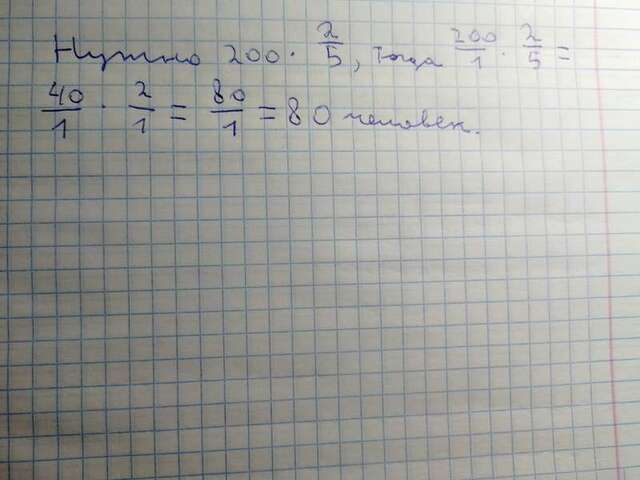 Нужно 200 · 2/5, тогда 200/1 · 2/5 =
40/1 · 2/1 = 80/1 = 80 человек.